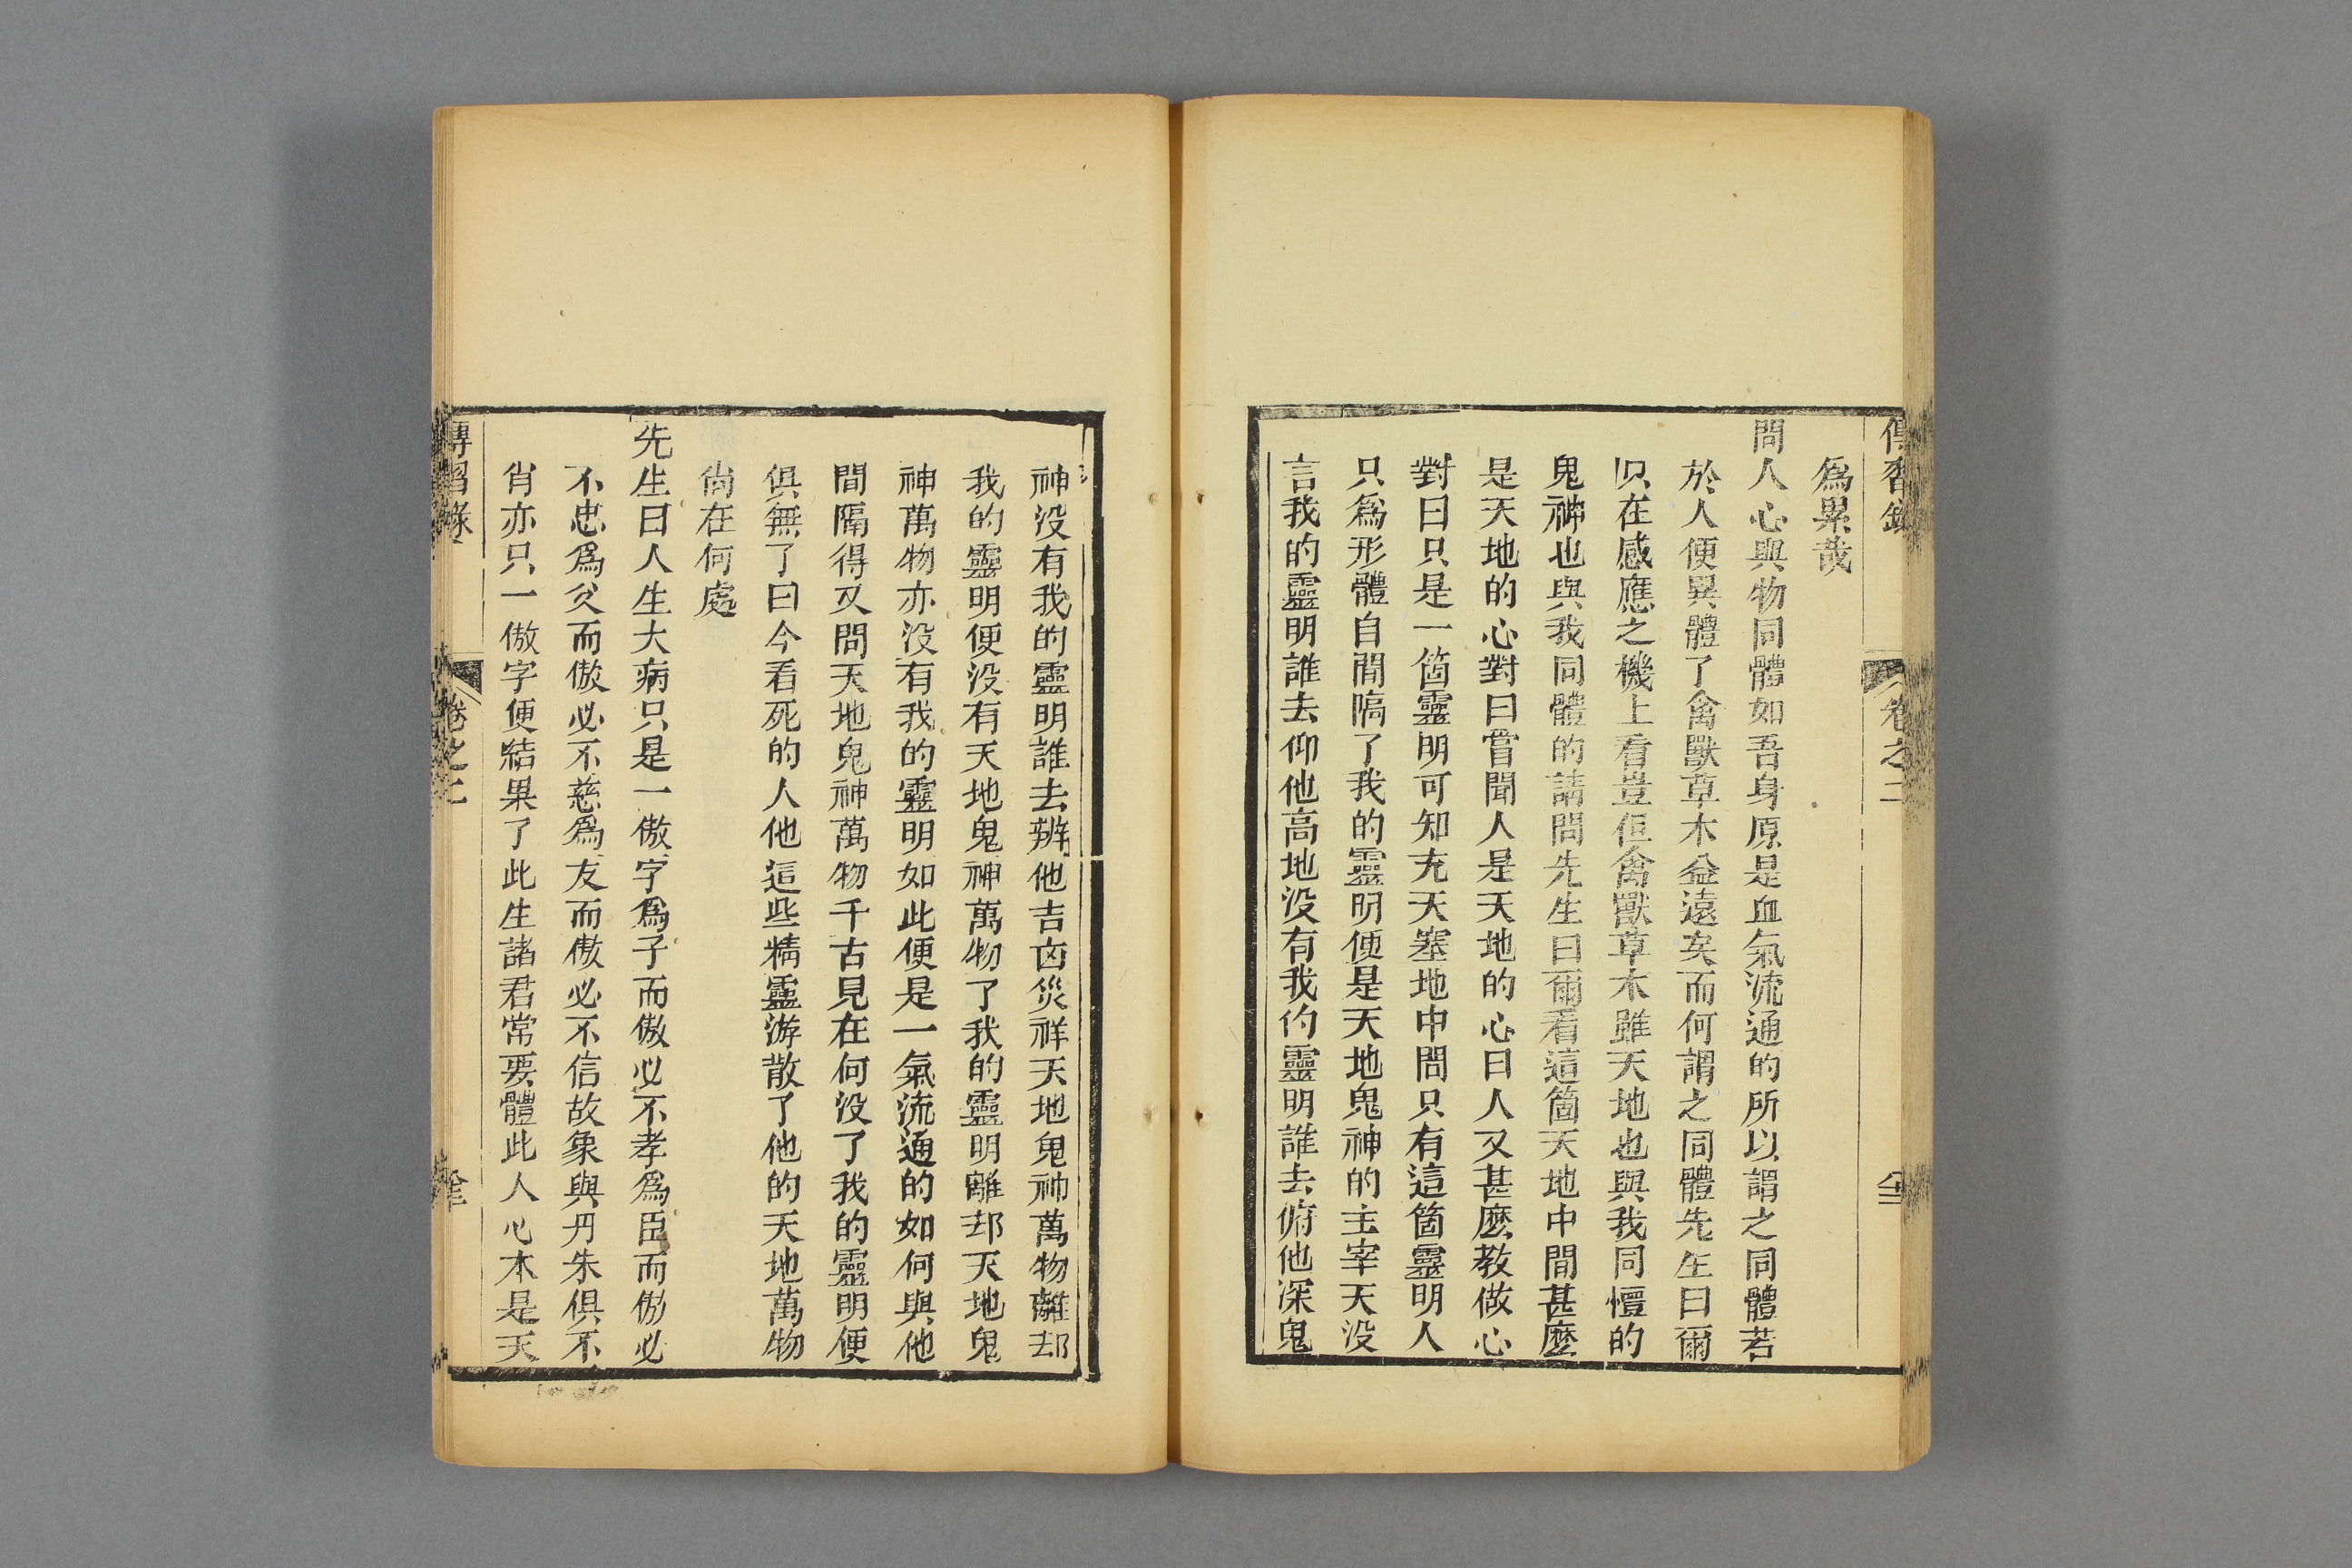 傳習錄
卷之二
為累哉
問人心與物同體如吾身原是血氣流通的所以謂之同體若
於人便異體了禽獸草木益遠矣而何謂之同體先生曰爾
只在感應之機上看豈但禽獸草木雖天地也與我同體的
鬼神也與我同體的請問先生曰爾看這箇天地中間甚麽
是天地的心對曰嘗聞人是天地的心曰人又甚麽教做心
對曰只是一箇靈明可知充天塞地中間只有這箇靈明人
只爲形體自間隔了我的靈明便是天地鬼神的主宰天没
言我的靈明誰去仰他高地没有我的靈明誰去俯他深鬼
神没有我的靈明誰去辨他吉凶災祥天地鬼神萬物離却
我的靈明便没有天地鬼神萬物了我的靈明離却天地鬼
神萬物亦没有我的靈明如此便是一氣流通的如何與他
間隔得又問天地鬼神萬物千古見在何没了我的靈明便
俱無了曰今看死的人他這些精靈游散了他的天地萬物
尚在何處
先生曰人生大病只是一傲字爲子而傲必不孝爲臣而傲必
不忠爲父而傲必不慈爲友而傲必不信故象與丹朱俱不
肖亦只一傲字便結果了此生諸君常要體此人心本是天
傳習錄
卷之二